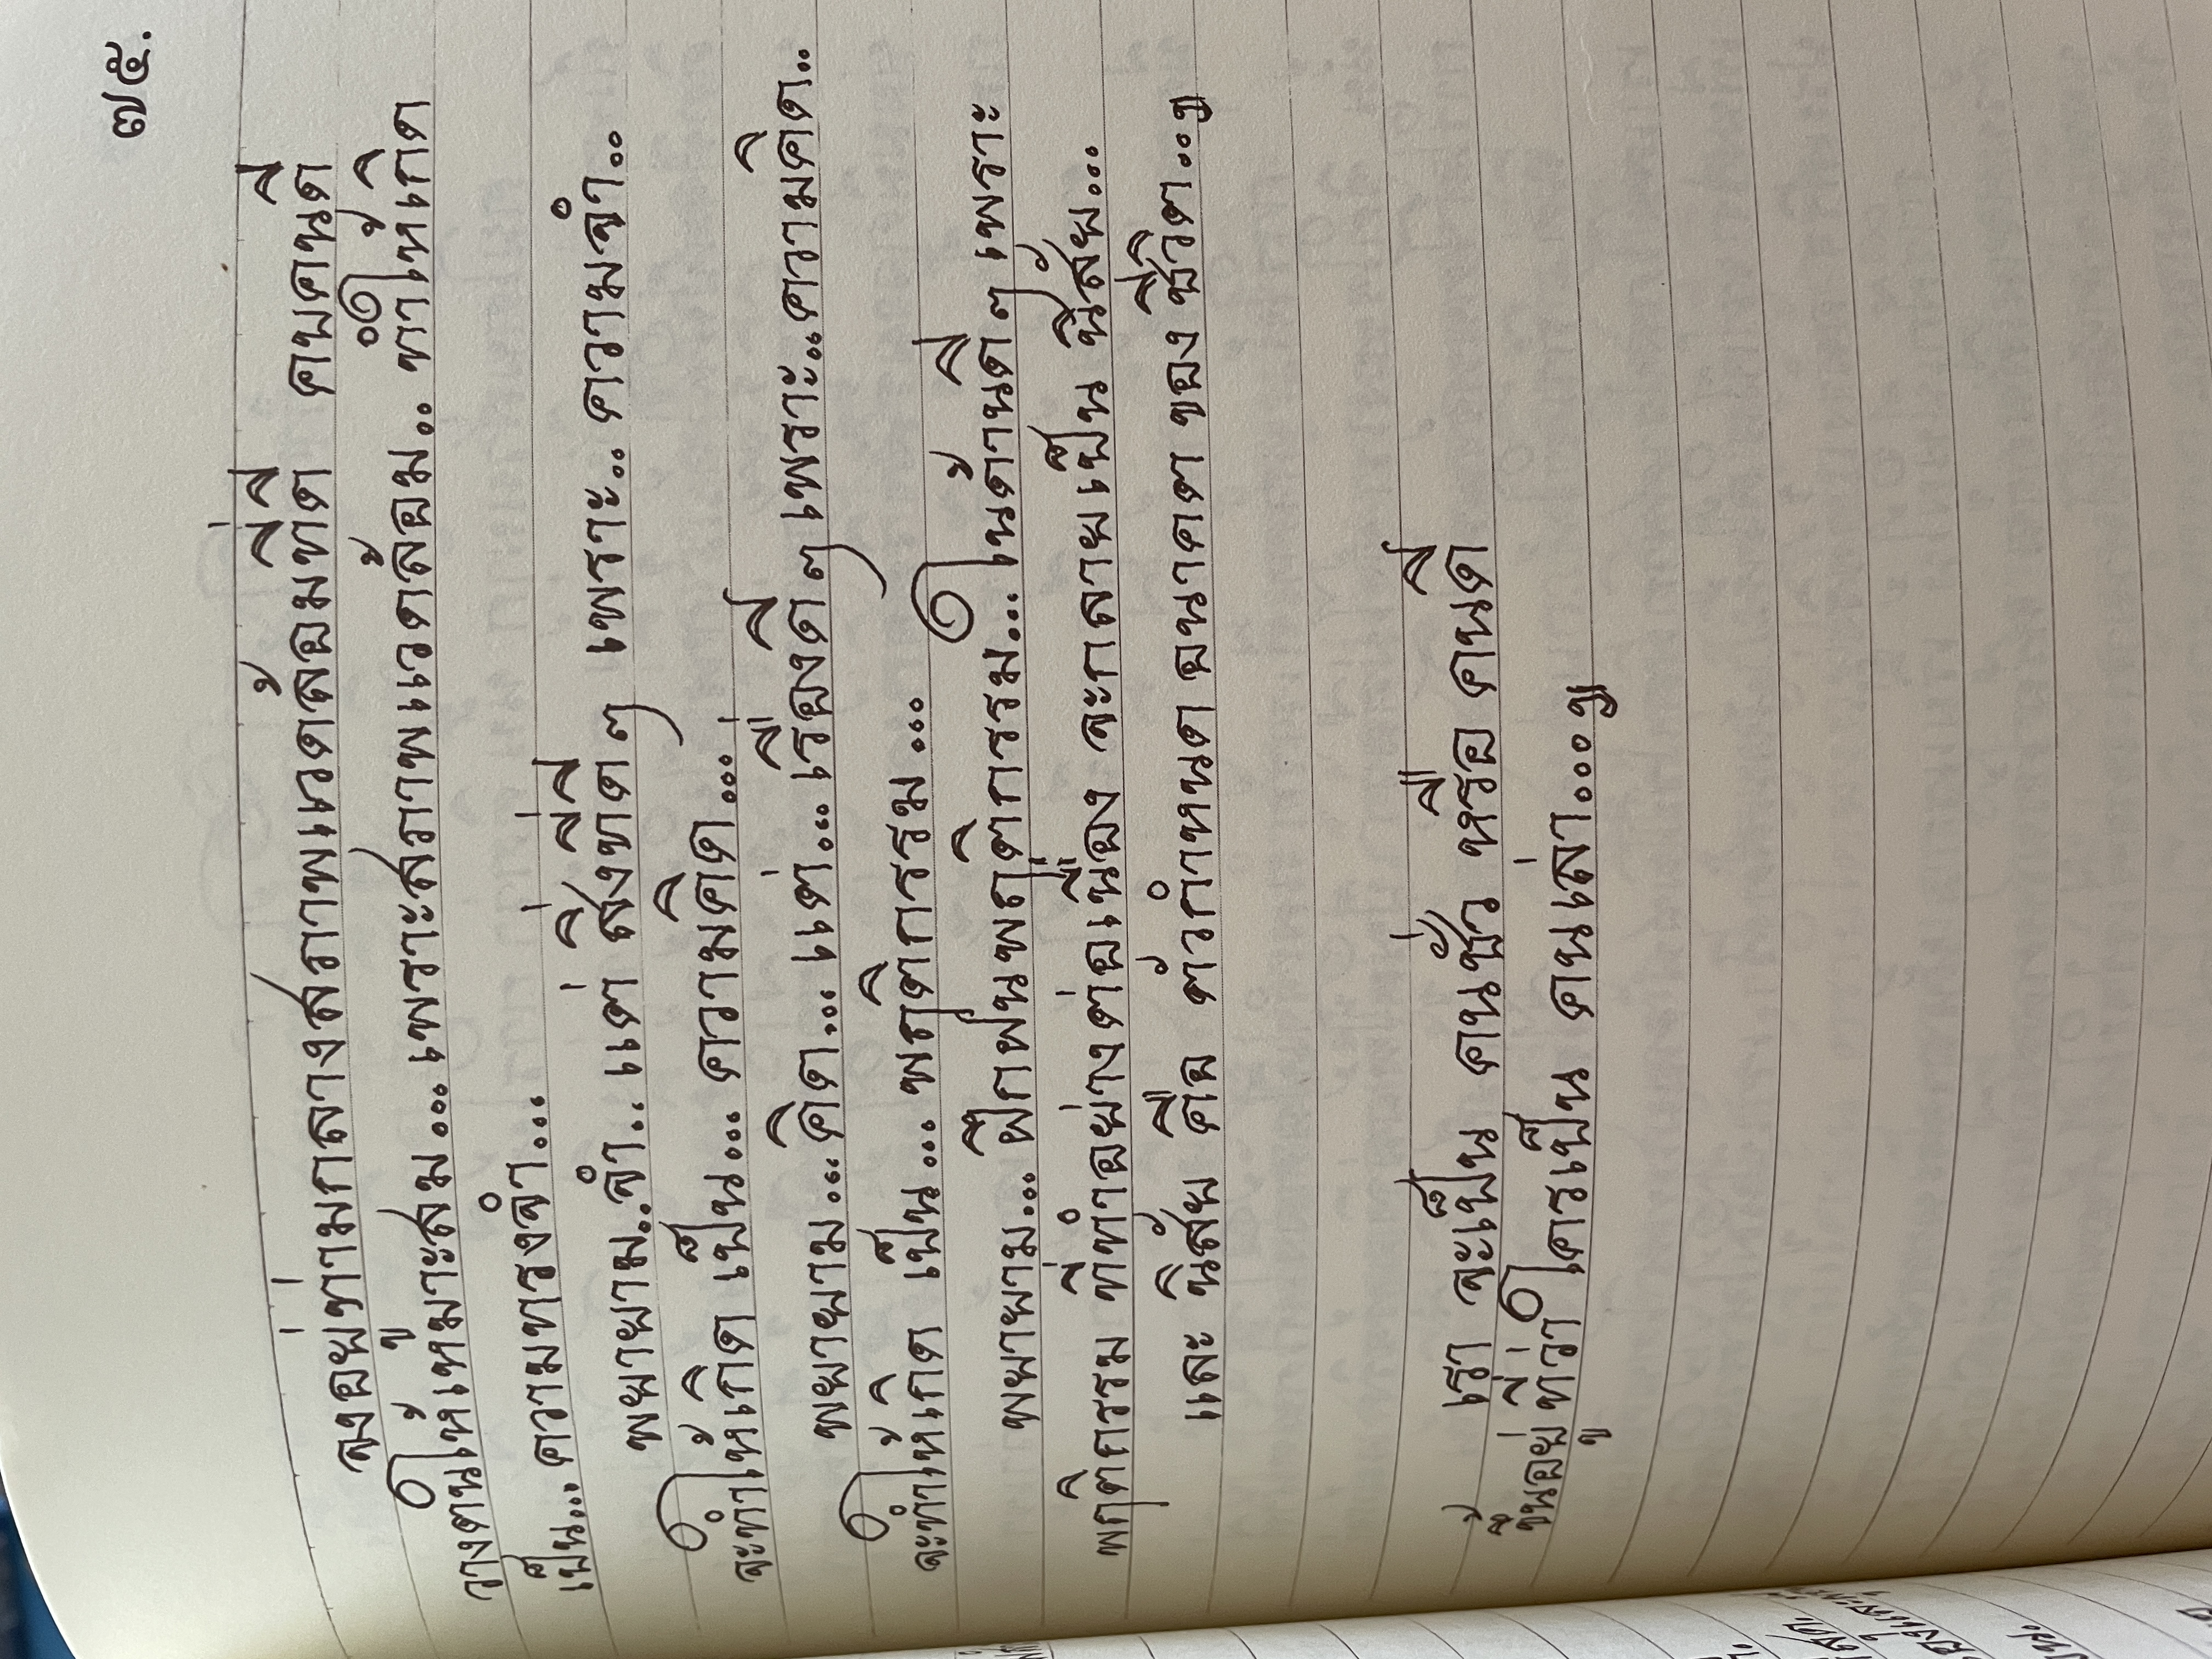 ๗๕.
จงอยู่ท่ามกลางสภาพแวดล้อมที่ดี คบคนดี
วางตนให้เหมาะสม... เพราะสภาพแวดล้อม.. ทำให้เกิด
เป็น... ความทรงจำ...
พยายาม..จำ.. แต่ สิ่งที่ดี ๆ เพราะ.. ความจำ..
จะทำให้เกิด เป็น... ความคิด...
พยายาม...คิด... แต่... เรื่องดี ๆ เพราะ...ความคิด..
จะทำให้เกิด เป็น... พฤติกรรม...
พยายาม... ฝึกฝนพฤติกรรม... ในด้านดี ๆ เพราะ
พฤติกรรม ที่ทำอย่างต่อเนื่อง จะกลายเป็น นิสัย...
และ นิสัย คือ ตัวกำหนด อนาคต ของ ชีวิต...ฯ
เรา จะเป็น คนชั่ว หรือ คนดี
ขึ้นอยู่ที่ว่า ใครเป็น คนเล่า....ฯ